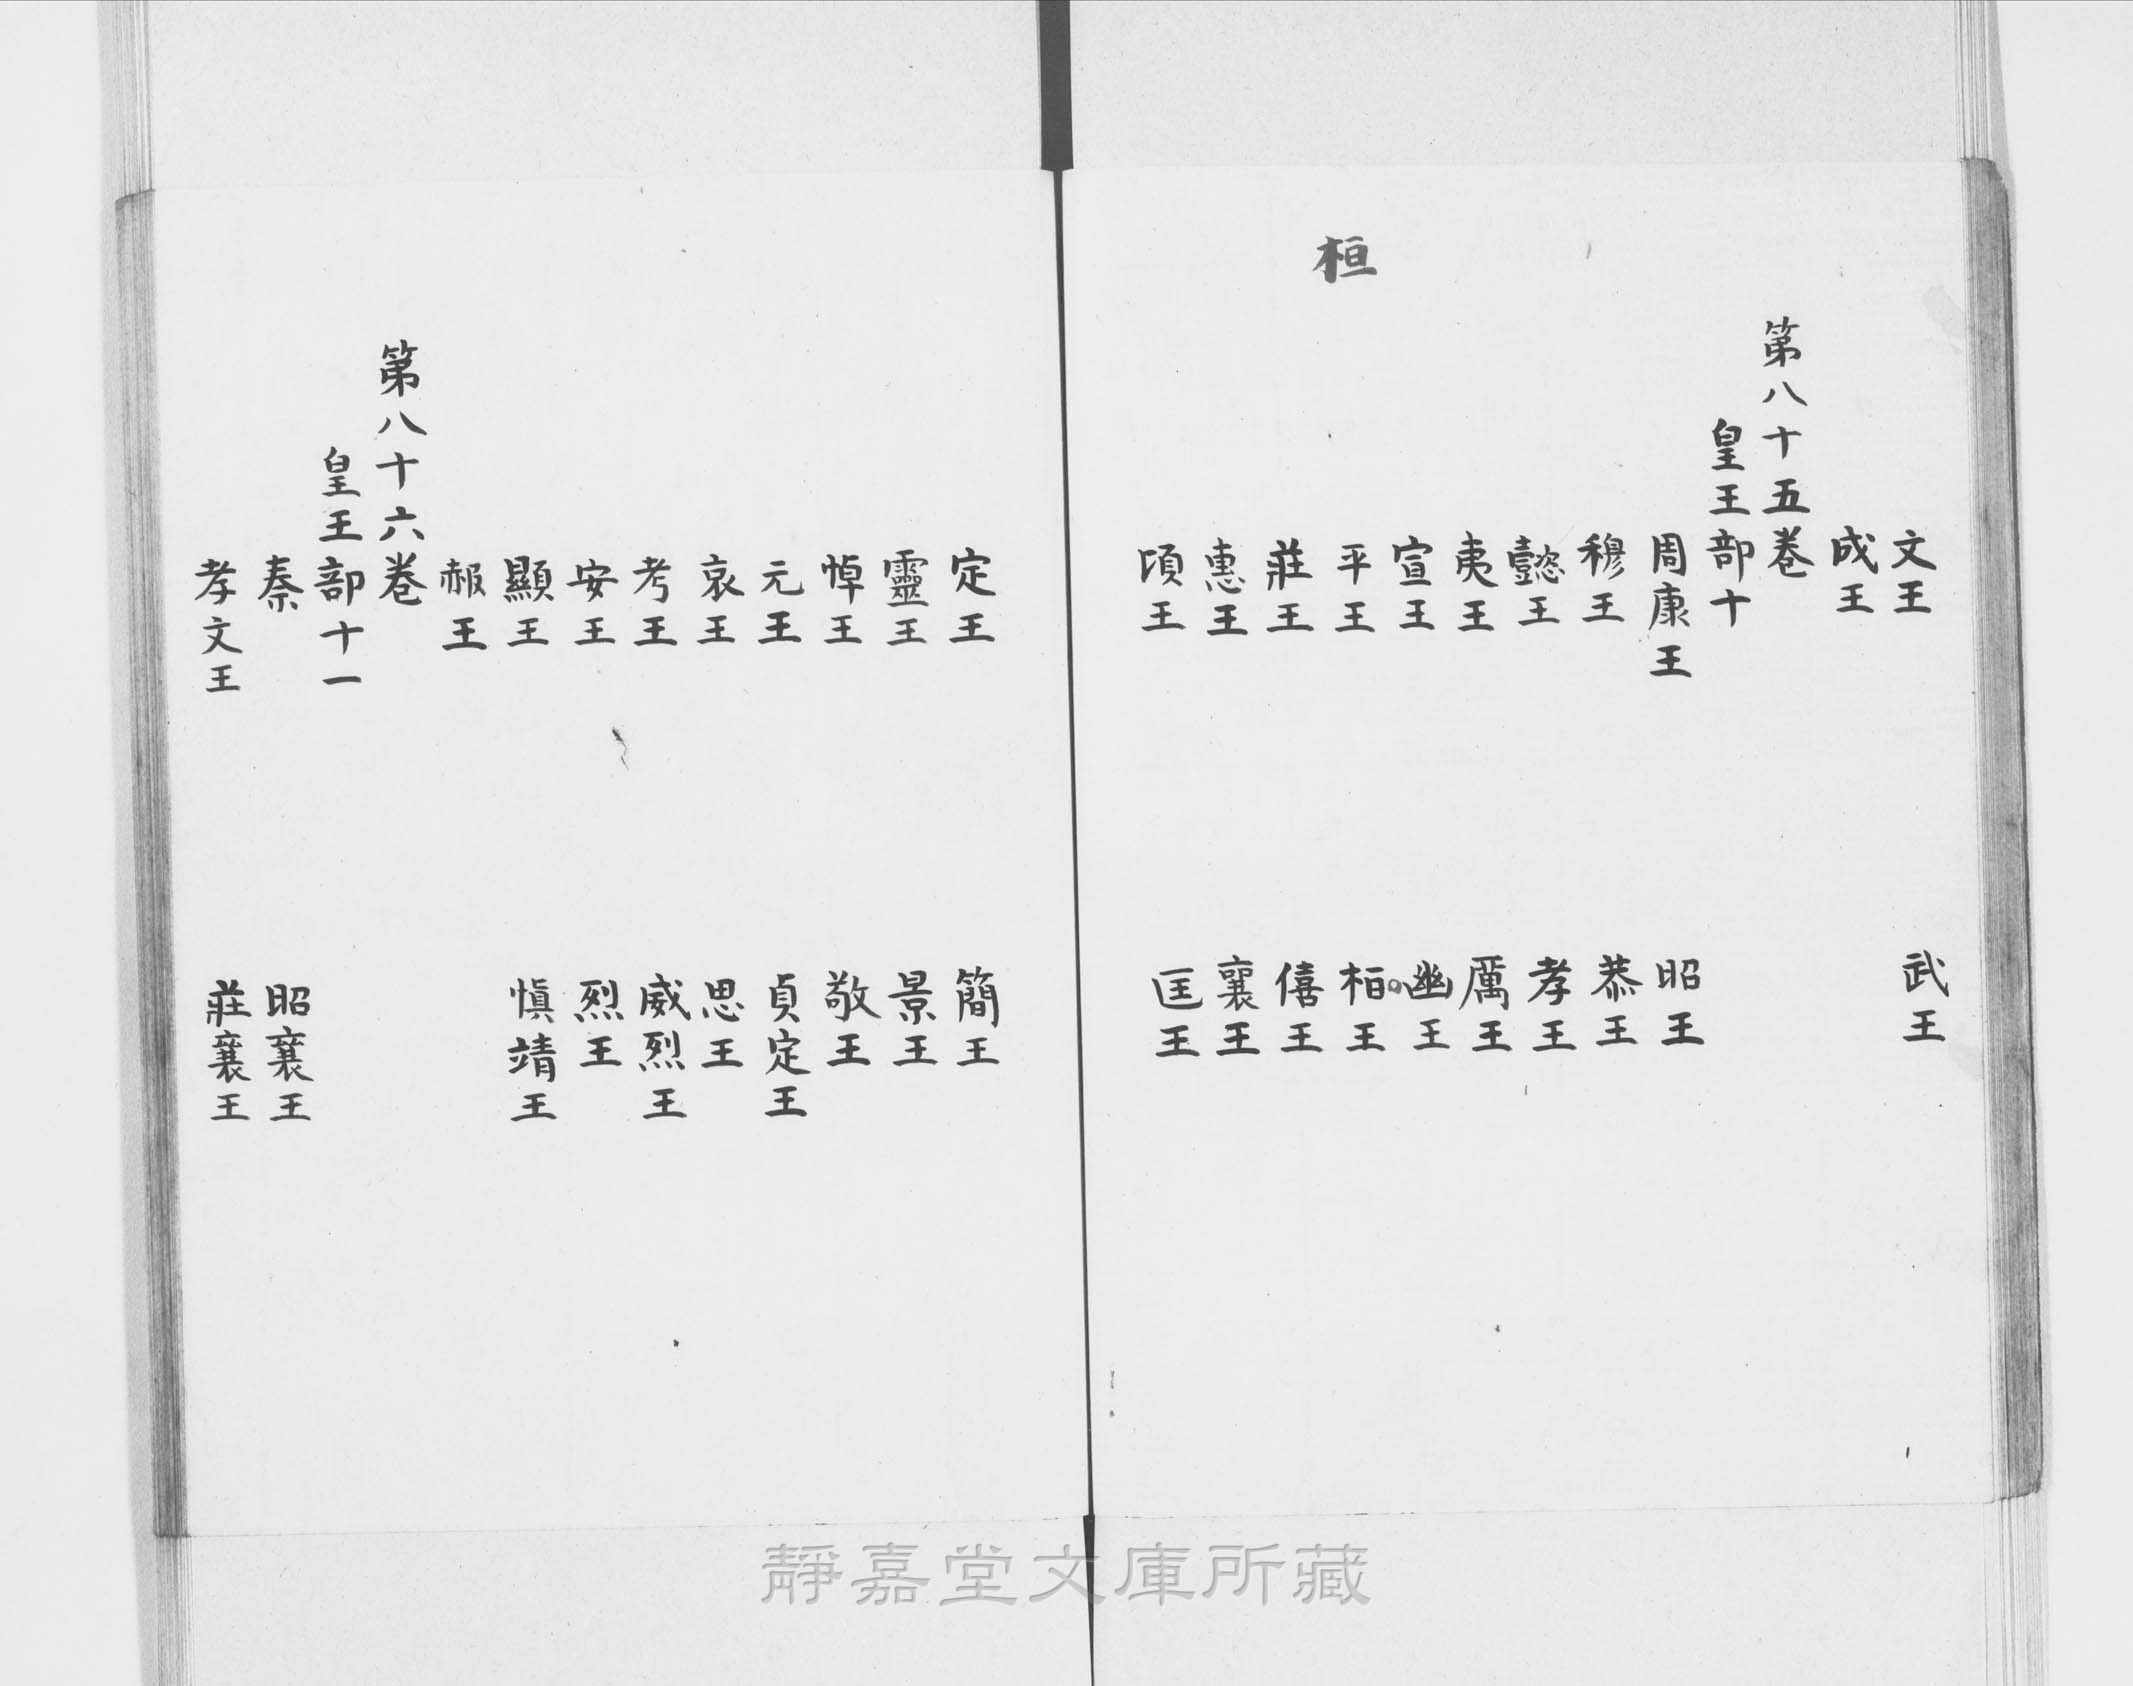 文王　武王
成王
第八十五巻
皇王部十
周康王　昭王
穆王　恭王
懿王　孝王
夷王　厲王
宣王　幽王
平王　栢王
桓
莊王　僖王
惠王　襄王
頃王　匡王
定王　簡王
靈王　景王
悼王　敬王
元王　貞定王
哀王　思王
考王　威烈王
安王　烈王
顯王　慎靖王
赧王
第八十六巻
皇王部十一
秦　昭襄王
孝文王　莊襄王
靜嘉堂文庫所藏